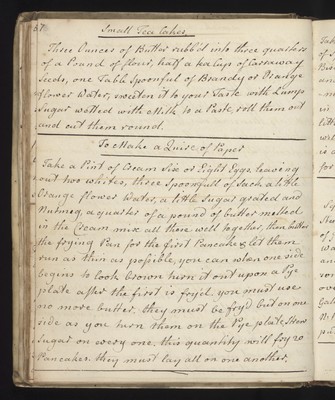 57
Small Tea Cakes
Three Ounces of Butter rubb'd into three quarters
of a Pound of flour, half a tea cup of Carraway
Seeds, one Table Spoonful of Brandy or Orange
flower Water, sweeten it to your Taste with Lump
Sugar wetted with Milk to a Paste, roll them out
and cut them round.
To Make a Quire of Paper
Take a Pint of Cream Six or Eight Eggs leaving
out two whites, three Spoonfull of Sack a little
Orange flower Water, a little Sugar grated and
Nutmeg, a quarter of a pound of butter melted
in the Cream mix all these well together, then butter
the frying Pan for the first Pancake & let them
run as thin as possible, you can when one side
begins to look brown turn it out upon a Pye
plate after the first is fry'd you must use
no more butter, they must be fry'd but on one
side as you turn them on the Pye plate Strew
Sugar on every one, this quantity will fry 20
Pancakes they must lay all on one another.